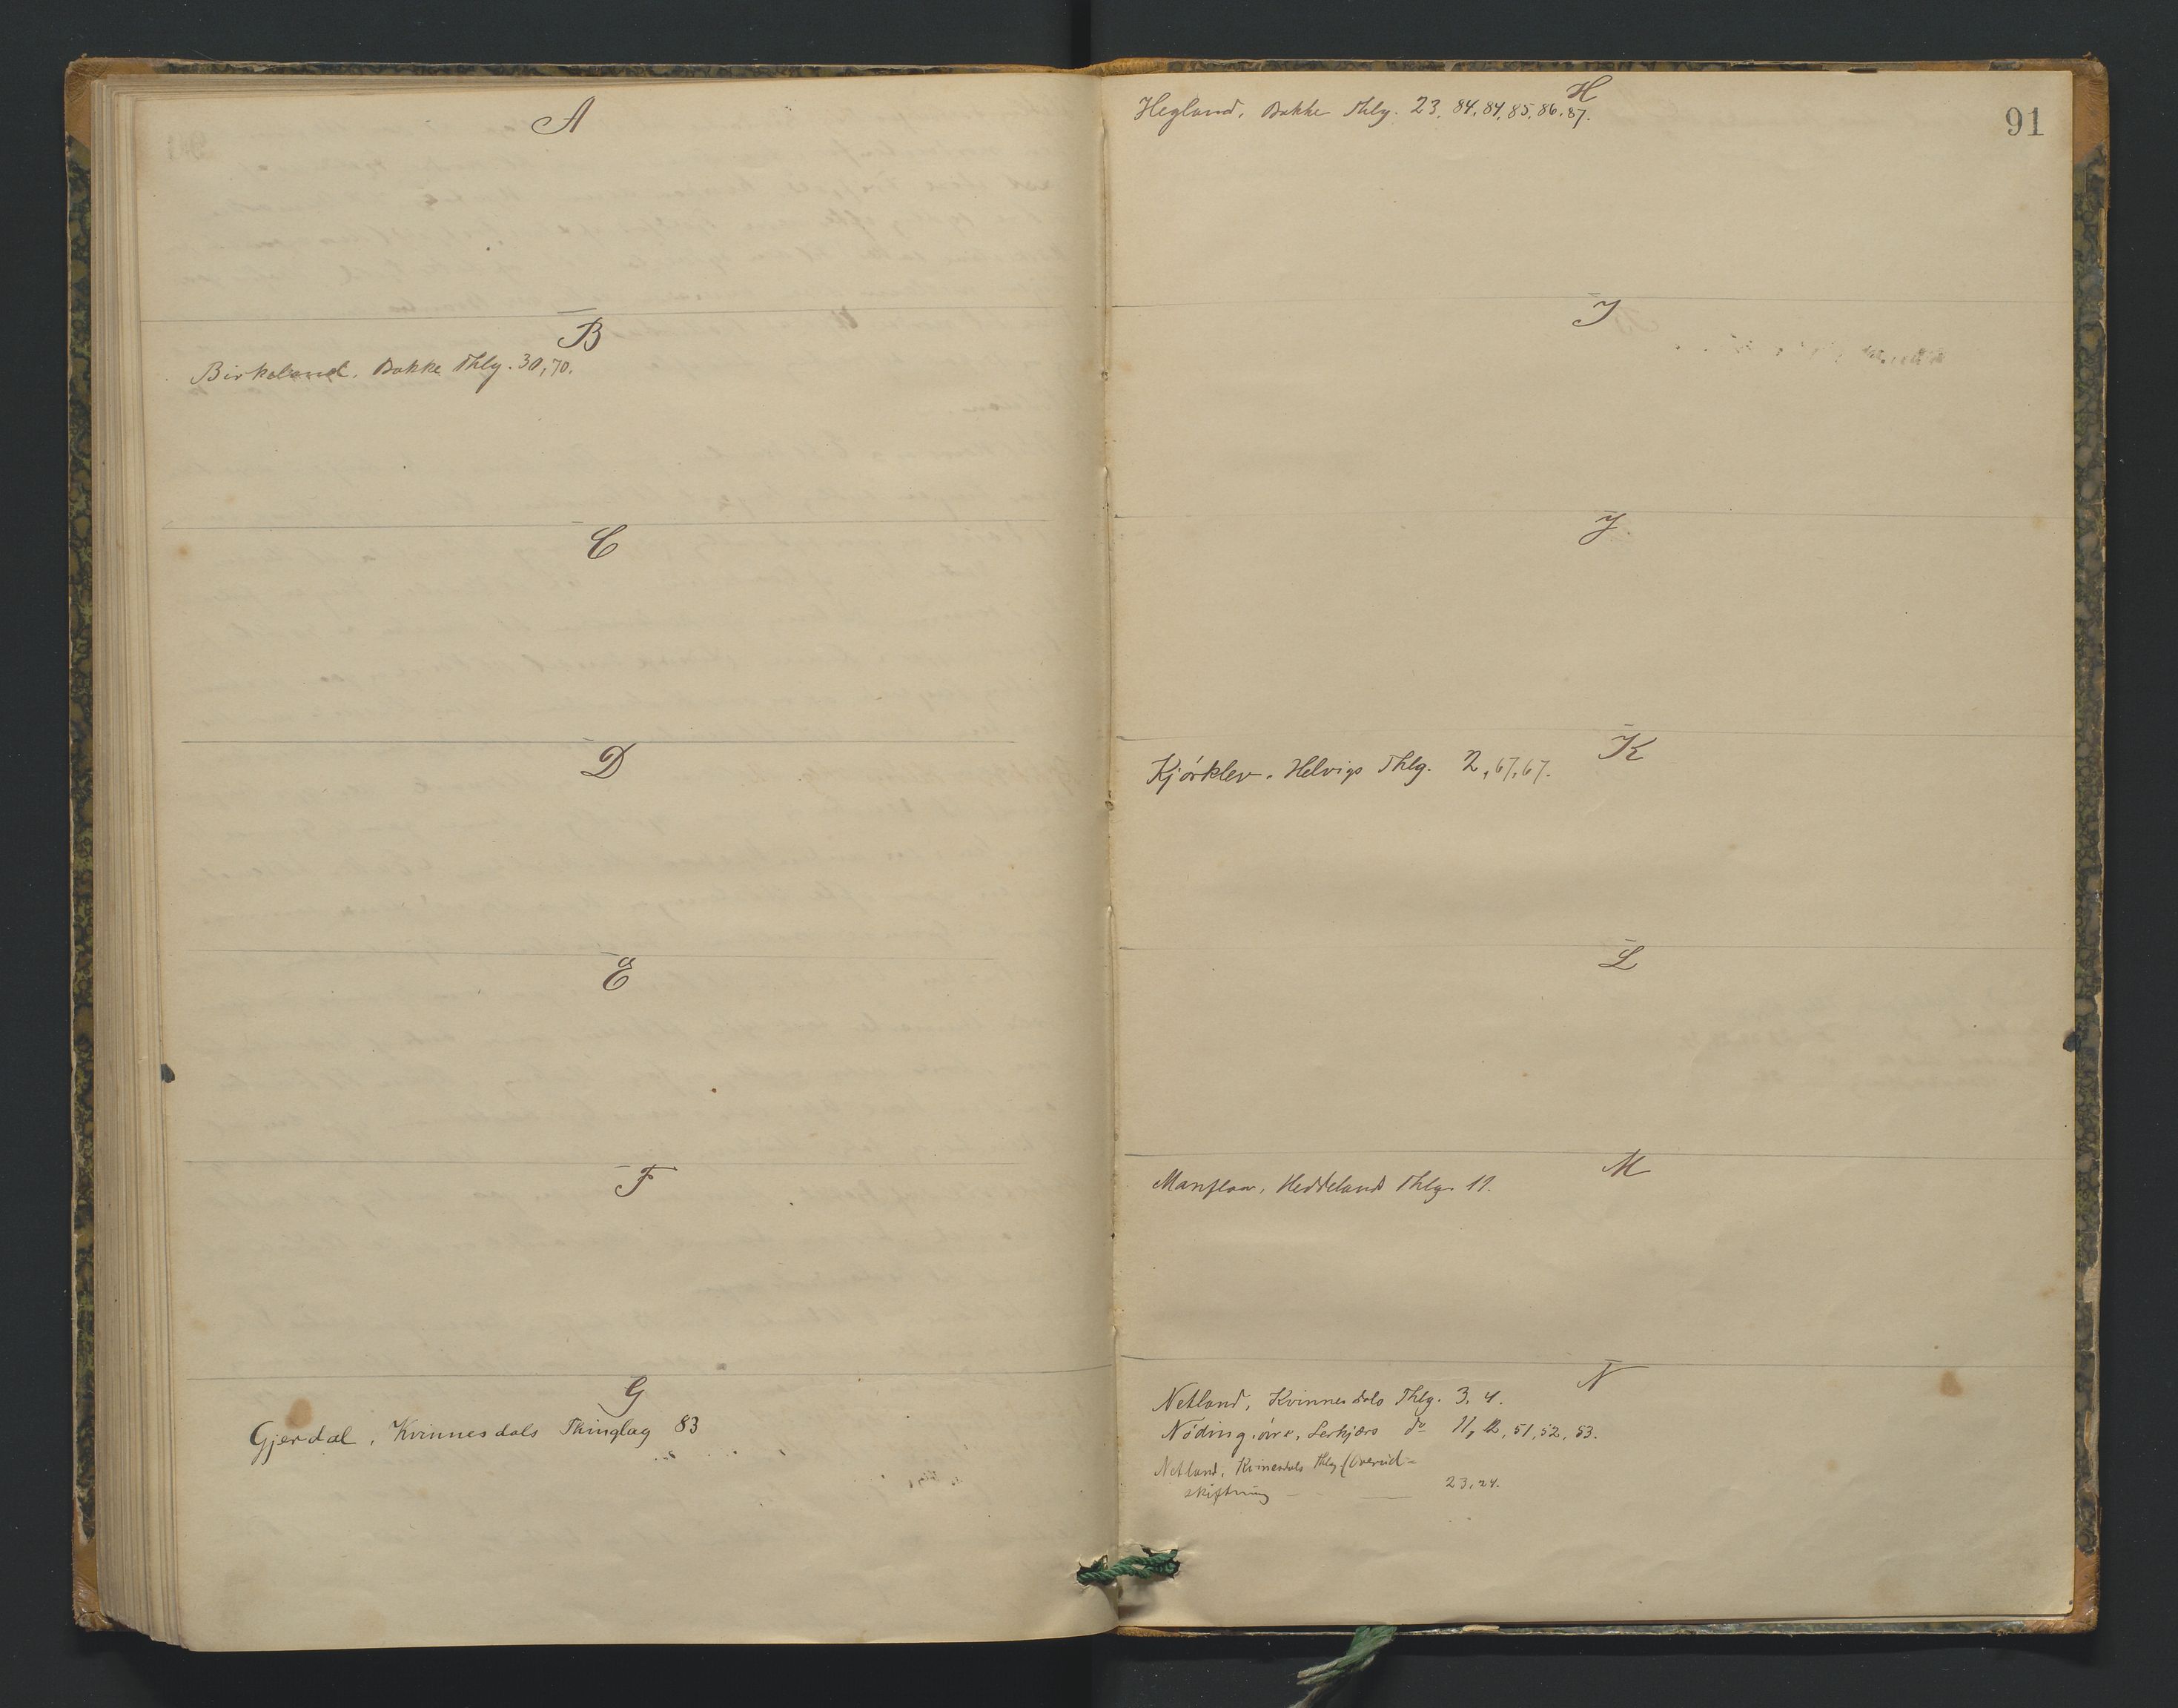 A
B
Birkeland, Bakke Thlg. 30, 70.
C
D
E
F
G
Gjerdal, Kvinnesdals Thinglag 83
91
H
Hegland, Bakke Thlg. 23, 84, 84, 85, 86, 87.
I
J
K
Kjörklev, Helvigs Thlg. 2, 67, 67.
L
M
Manflaa, Heddelands Thlg. 11.
N
Netland, Kvinnesdals Thlg. 3, 4.
Nöding, Lerkjærs do 11, 12, 51, 52, 53.
Netland, Kvinesdals Thlg (Overud-
skiftning — — 23, 24.